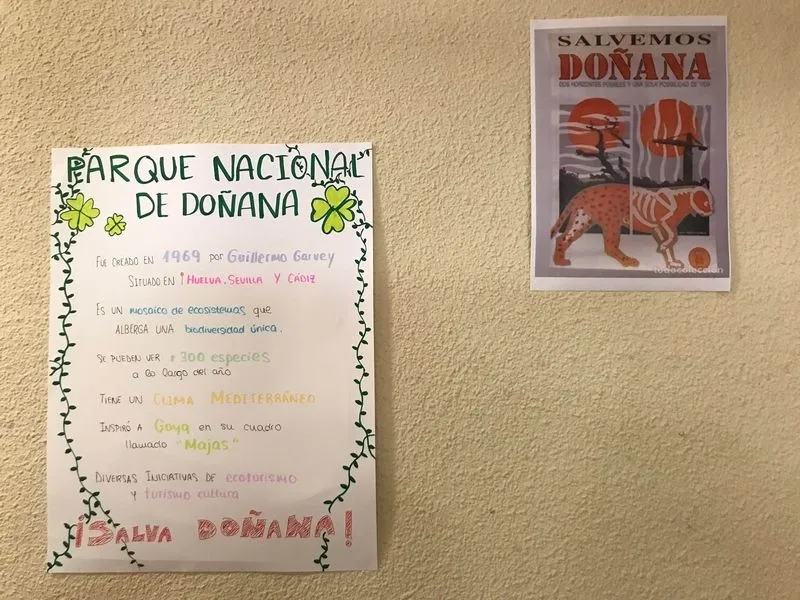 PARQUE NACIONAL
DE DOÑANA
FUE CREADO EN 1969 por Guillermo Garvey
SITUADO EN ¡HUELVA, SEVILLA Y CÁDIZ
ES UN mosaico de ecosistemas que
ALBERGA UNA biodiversidad única.
SE PUEDEN VER +300 especies
a lo largo del año
TIENE UN CLIMA MEDITERRÁNEO
INSPIRÓ A Goya en su cuadro
llamado "Majas"
DIVERSAS INICIATIVAS DE ecoturismo
Y turismo cultura
¡SALVA DOÑANA!
SALVEMOS
DOÑANA
DOS HORIZONTES POSIBLES Y UNA SOLA POSIBILIDAD DE VIDA
todocoleccion